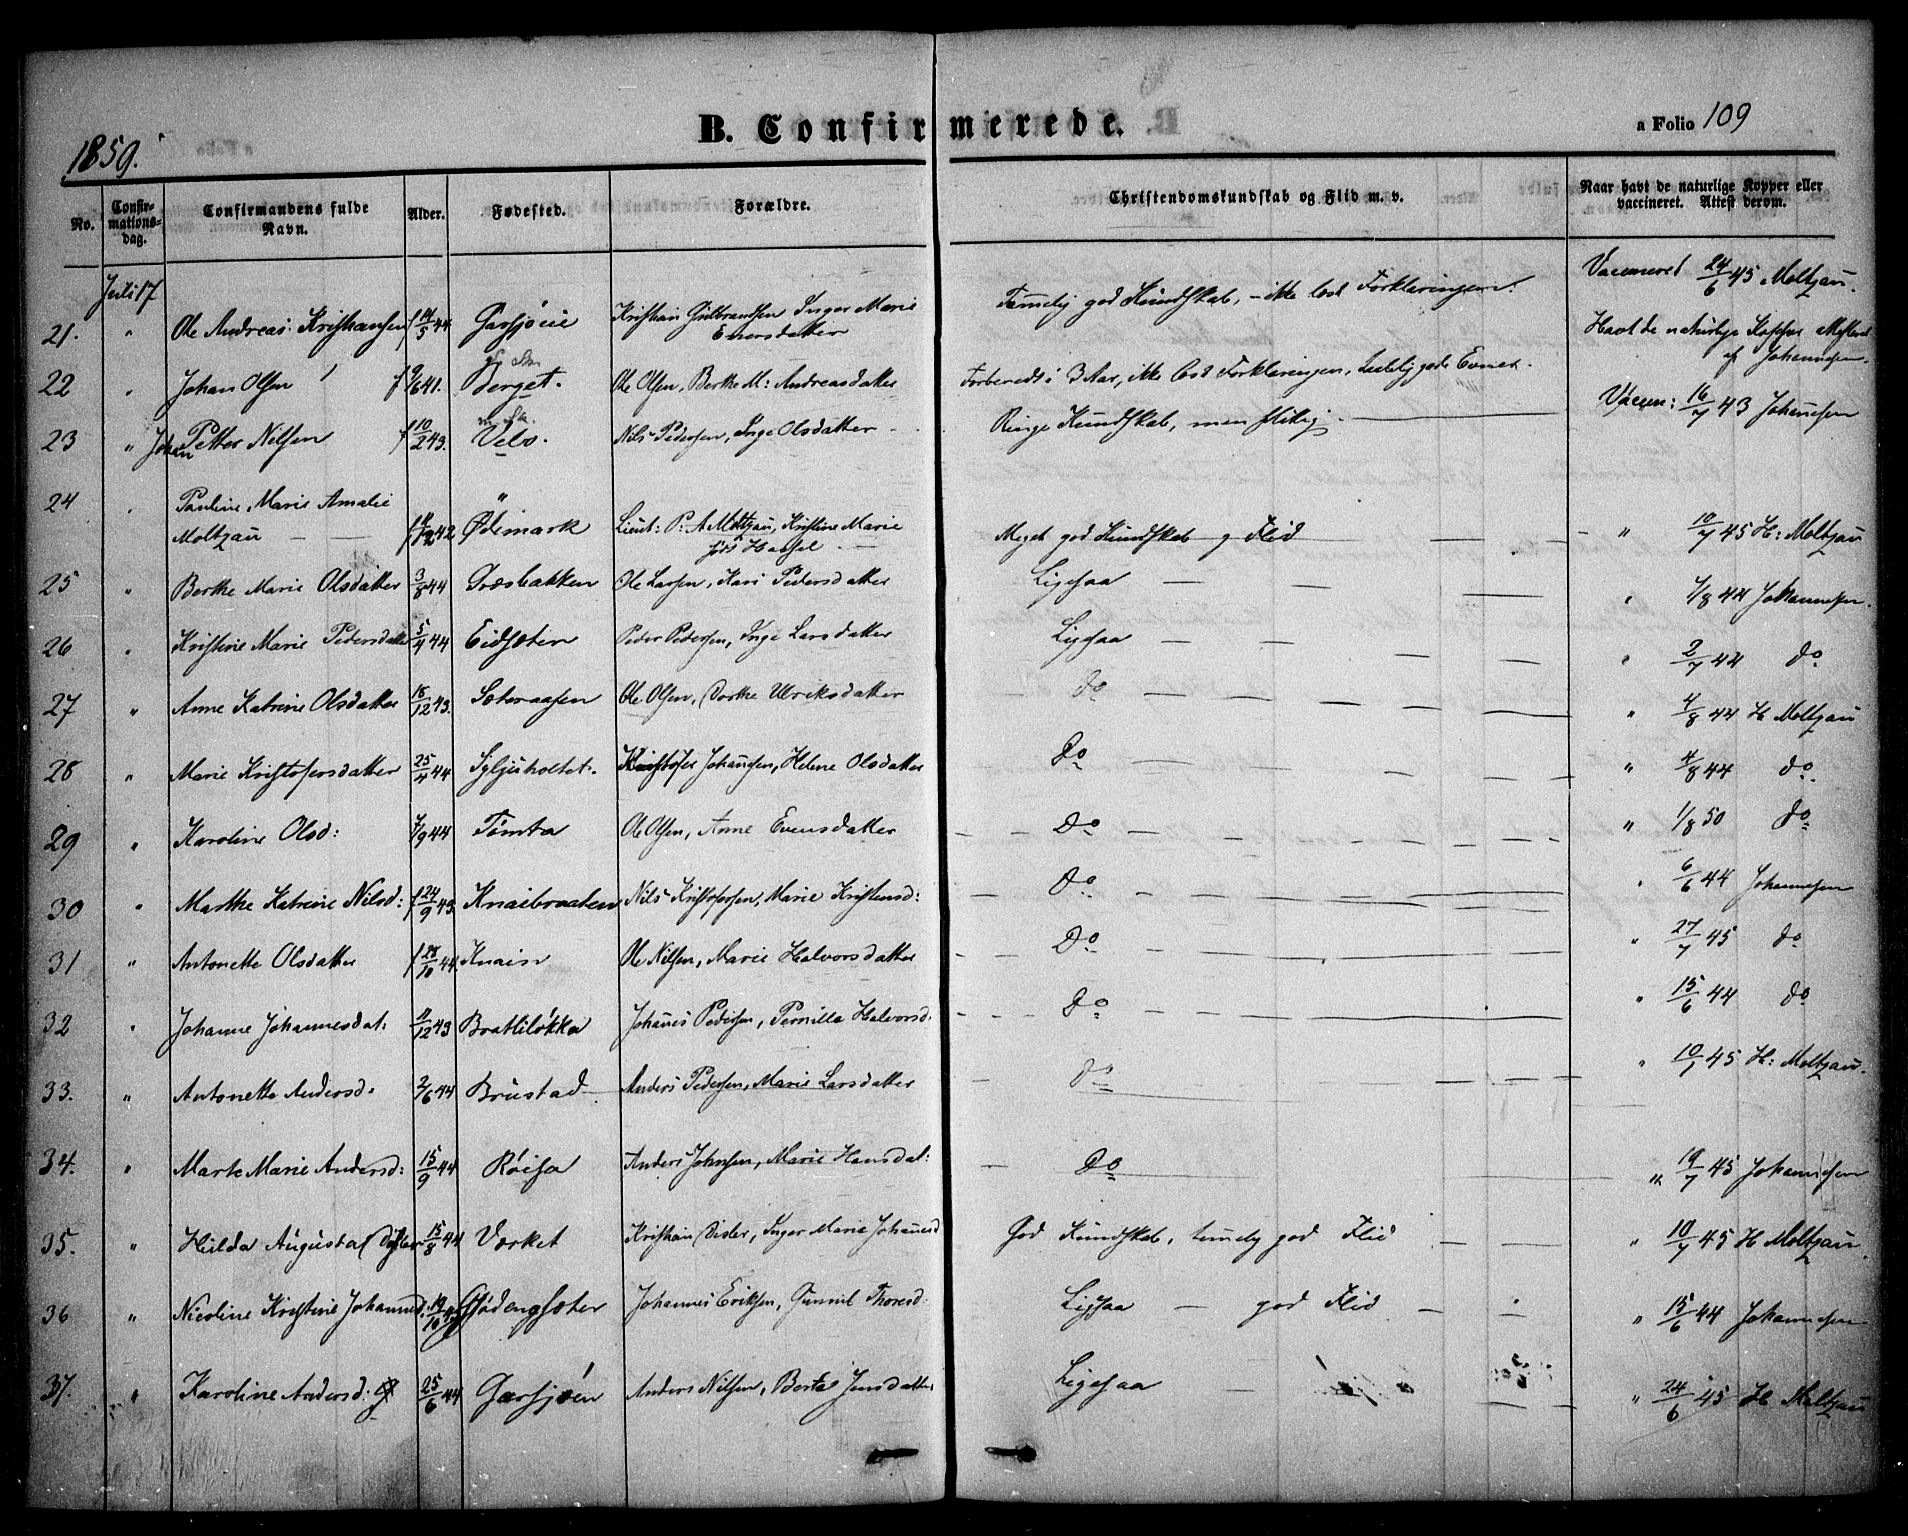 1859.
B. Confirmerede.
a Folio 109
No.
Confir-
mations-
dag.
Confirmandens fulde
Navn.
Alder.
Fødested.
Forældre.
Christendomskundskab og Flid m. v.
Naar havt de naturlige Kopper eller
vaccineret. Attest derom.
Juli 17
21. " Ole Andreas Kristiansen f 14/5 44 Garsjøie Kristian Gulbrandsen Inger Marie Temelig god Kundskab, - ikke læst Forklaringen. Vaccineret 24/6 45 Moltzau.
Enersdatter
22 " Johan Olsen f 9/6 41. Berget. Ole Olsen, Berthe M: Andreasdatter Forberedt i 3 Aar, ikke læst Forklaringen, gode Evner. Havt de naturlige Kopper
af Johannesen.
23 " Johan Petter Nilsen f 10/2 43. Velo. Nils Pedersen, Inge Olsdatter Ringe Kundskab, men flitig. Vaccin: 16/7 43 Johannesen
24 " Pauline Marie Amalie "
Moltzau — — 42 Ødemark Lieut: P: A Moltzau, Kristine Marie Meget god Kundskab og Flid " 10/7 45 H: Moltzau
født Hassel
25 " Berthe Marie Olsdatter 3/8 44 Græsbakken Ole Larsen, Kari Pedersdatter Ligesaa " 7/8 44 Johannesen.
26 " Kristine Marie Pedersdatter 5/4 44 Eidsæter Peder Pedersen, Inge Larsdatter Ligesaa " 2/7 44 do
27 " Anne Katrine Olsdatter 18/12 43. Sæteraasen Ole Olsen, Dorthe Ulriksdatter do " 4/8 44 H Moltzau
28 " Marie Kristofersdatter 25/4 44 Syljuholtet. Kristofer Johansen, Helene Olsdatter Do " 4/8 44 do.
29 " Karoline Olsd: 7/9 44 Tomta Ole Olsen, Anne Evensdatter Do " 1/8 50 do
30 " Marthe Katrine Nilsd: f 24/9 43. Knaibraaten Nils Kristofersen, Marie Kristensd: Do " 6/6 44 Johannesen
31 " Antonette Olsdatter f 28/10 44. Knain Ole Nilsen, Marie Halvorsdatter Do " 27/7 45 do
32 " Johanne Johannesdat: 11/12 43 Brattiløkka Johanes Pedersen, Pernille Halvorsd. Do " 15/6 44 do
33. " Antonette Andersd. 2/6 44 Brustad Anders Pedersen, Marie Larsdatter Do " 10/7 45 H: Moltzau.
34. " Marte Marie Andersd: 15/9 44 Røisa Anders Johnsen, Marie Hansdat: Do " 19/7 45 Johannesen
35. " Hulda Augusta Disler 15/8 44 Værket Kristian Disler, Inger Marie Johannesd God Kundskab, temelig god Flid " 10/7 45 H Moltzau
36 " Nicoline Kristine Johannesd. 19/10 Johannes Eriksen, Gunnil Thoresd. Ligesaa — god Flid " 15/6 44 Johannesen
37. " Karoline Andersd. 25/6 44 Garsjøen Anders Nilsen, Berta Jensdatter Ligesaa " 24/6 45 H Moltzau